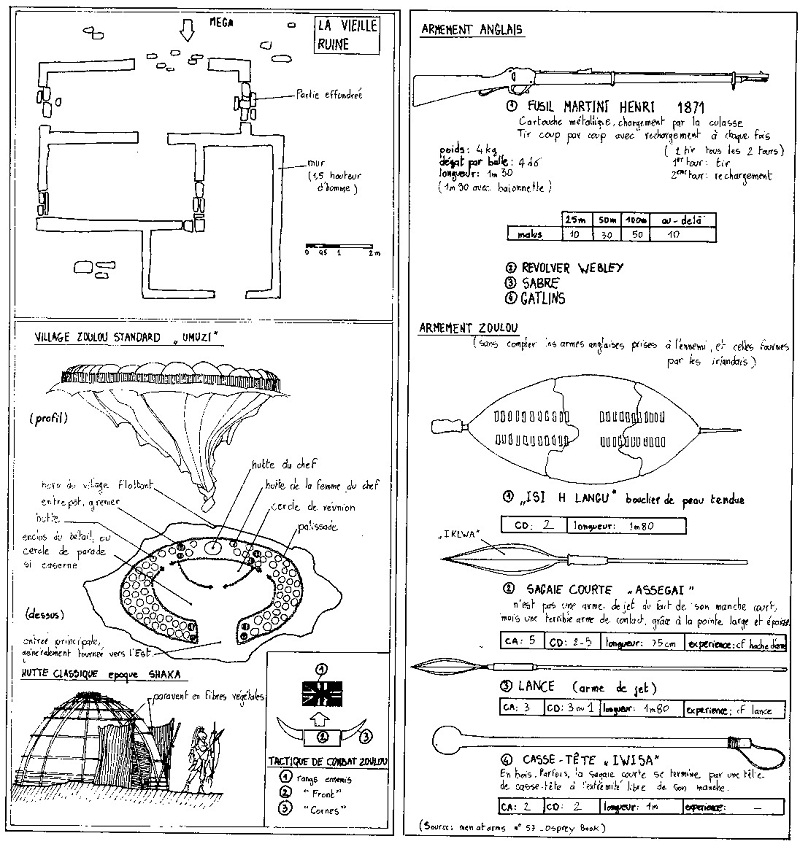 MEGA
LA VIEILLE
RUINE
Partie effondrée
mur
(1,5 hauteur
d'homme)
0 0,5 1 2m
VILLAGE ZOULOU STANDARD "UMUZI"
(profil)
hutte du chef
hors du village flottant
hutte de la femme du chef
entrepot, grenier
cercle de réunion
hutte
palissade
enclos du bétail, ou
cercle de parade
si caserne
(dessus)
entrée principale,
généralement tournée vers l'Est
HUTTE CLASSIQUE epoque SHAKA
paravent en fibres végétales
1
2
3
TACTIQUE DE COMBAT ZOULOU
1 rangs ennemis
2 "Front"
3 "Cornes"
ARMEMENT ANGLAIS
1 FUSIL MARTINI HENRI 1871
Cartouche métallique, chargement par la culasse
Tir coup par coup avec rechargement à chaque fois
(1 tir tous les 2 tours)
1er tour: tir
2eme tour: rechargement
poids: 4 kg
dégat par balle: 4 d6
longueur: 1m 30
(1m 90 avec baionnette)
25m 50m 100m au-delà
malus 10 30 50 10
2 REVOLVER WEBLEY
3 SABRE
4 GATLINS
ARMEMENT ZOULOU
(sans compter les armes anglaises prises à l'ennemi, et celles fournies
par les irlandais)
1 "ISI H LANGU" bouclier de peau tendue
CD: 2 longueur: 1m80
"IKLWA"
2 SAGAIE COURTE "ASSEGAI"
n'est pas une arme de jet du fait de son manche court,
mais une terrible arme de contact, grâce à la pointe large et épaisse
CA: 5 CD: 2-5 longueur: 75cm experience: cf hache d'arme
3 LANCE (arme de jet)
CA: 3 CD: 3 ou 1 longueur: 1m80 experience: cf lance
4 CASSE-TÊTE "IWISA"
En bois. Parfois, la sagaie courte se termine par une tête
de casse-tête à l'extrémité libre de son manche.
CA: 2 CD: 2 longueur: 1m experience: —
(Source: men at arms n° 57 - Osprey Book)